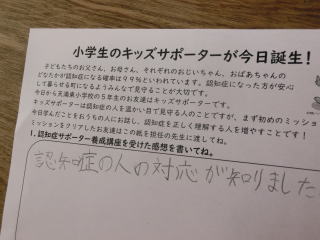 小学生のキッズサポーターが今日誕生!
子どもたちのお父さん、お母さん、それぞれのおじいちゃん、おばあちゃんの
どなたかが認知症になる確率は99%といわれています。認知症になった方が安心
して暮らせる町になるようみんなで見守ることが大切です。
今日から天満東小学校の5年生のお友達はキッズサポーターです。
キッズサポーターは認知症の人を温かい目で見守る人のことですが、まず初めのミッショ
今日学んだことをおうちの人にお話し、認知症を正しく理解する人を増やすことです!
ミッションをクリアしたお友達はこの紙を担任の先生に渡してね。
1.認知症サポーター養成講座を受けた感想を書いてね。
認知症の人の対応が知りました